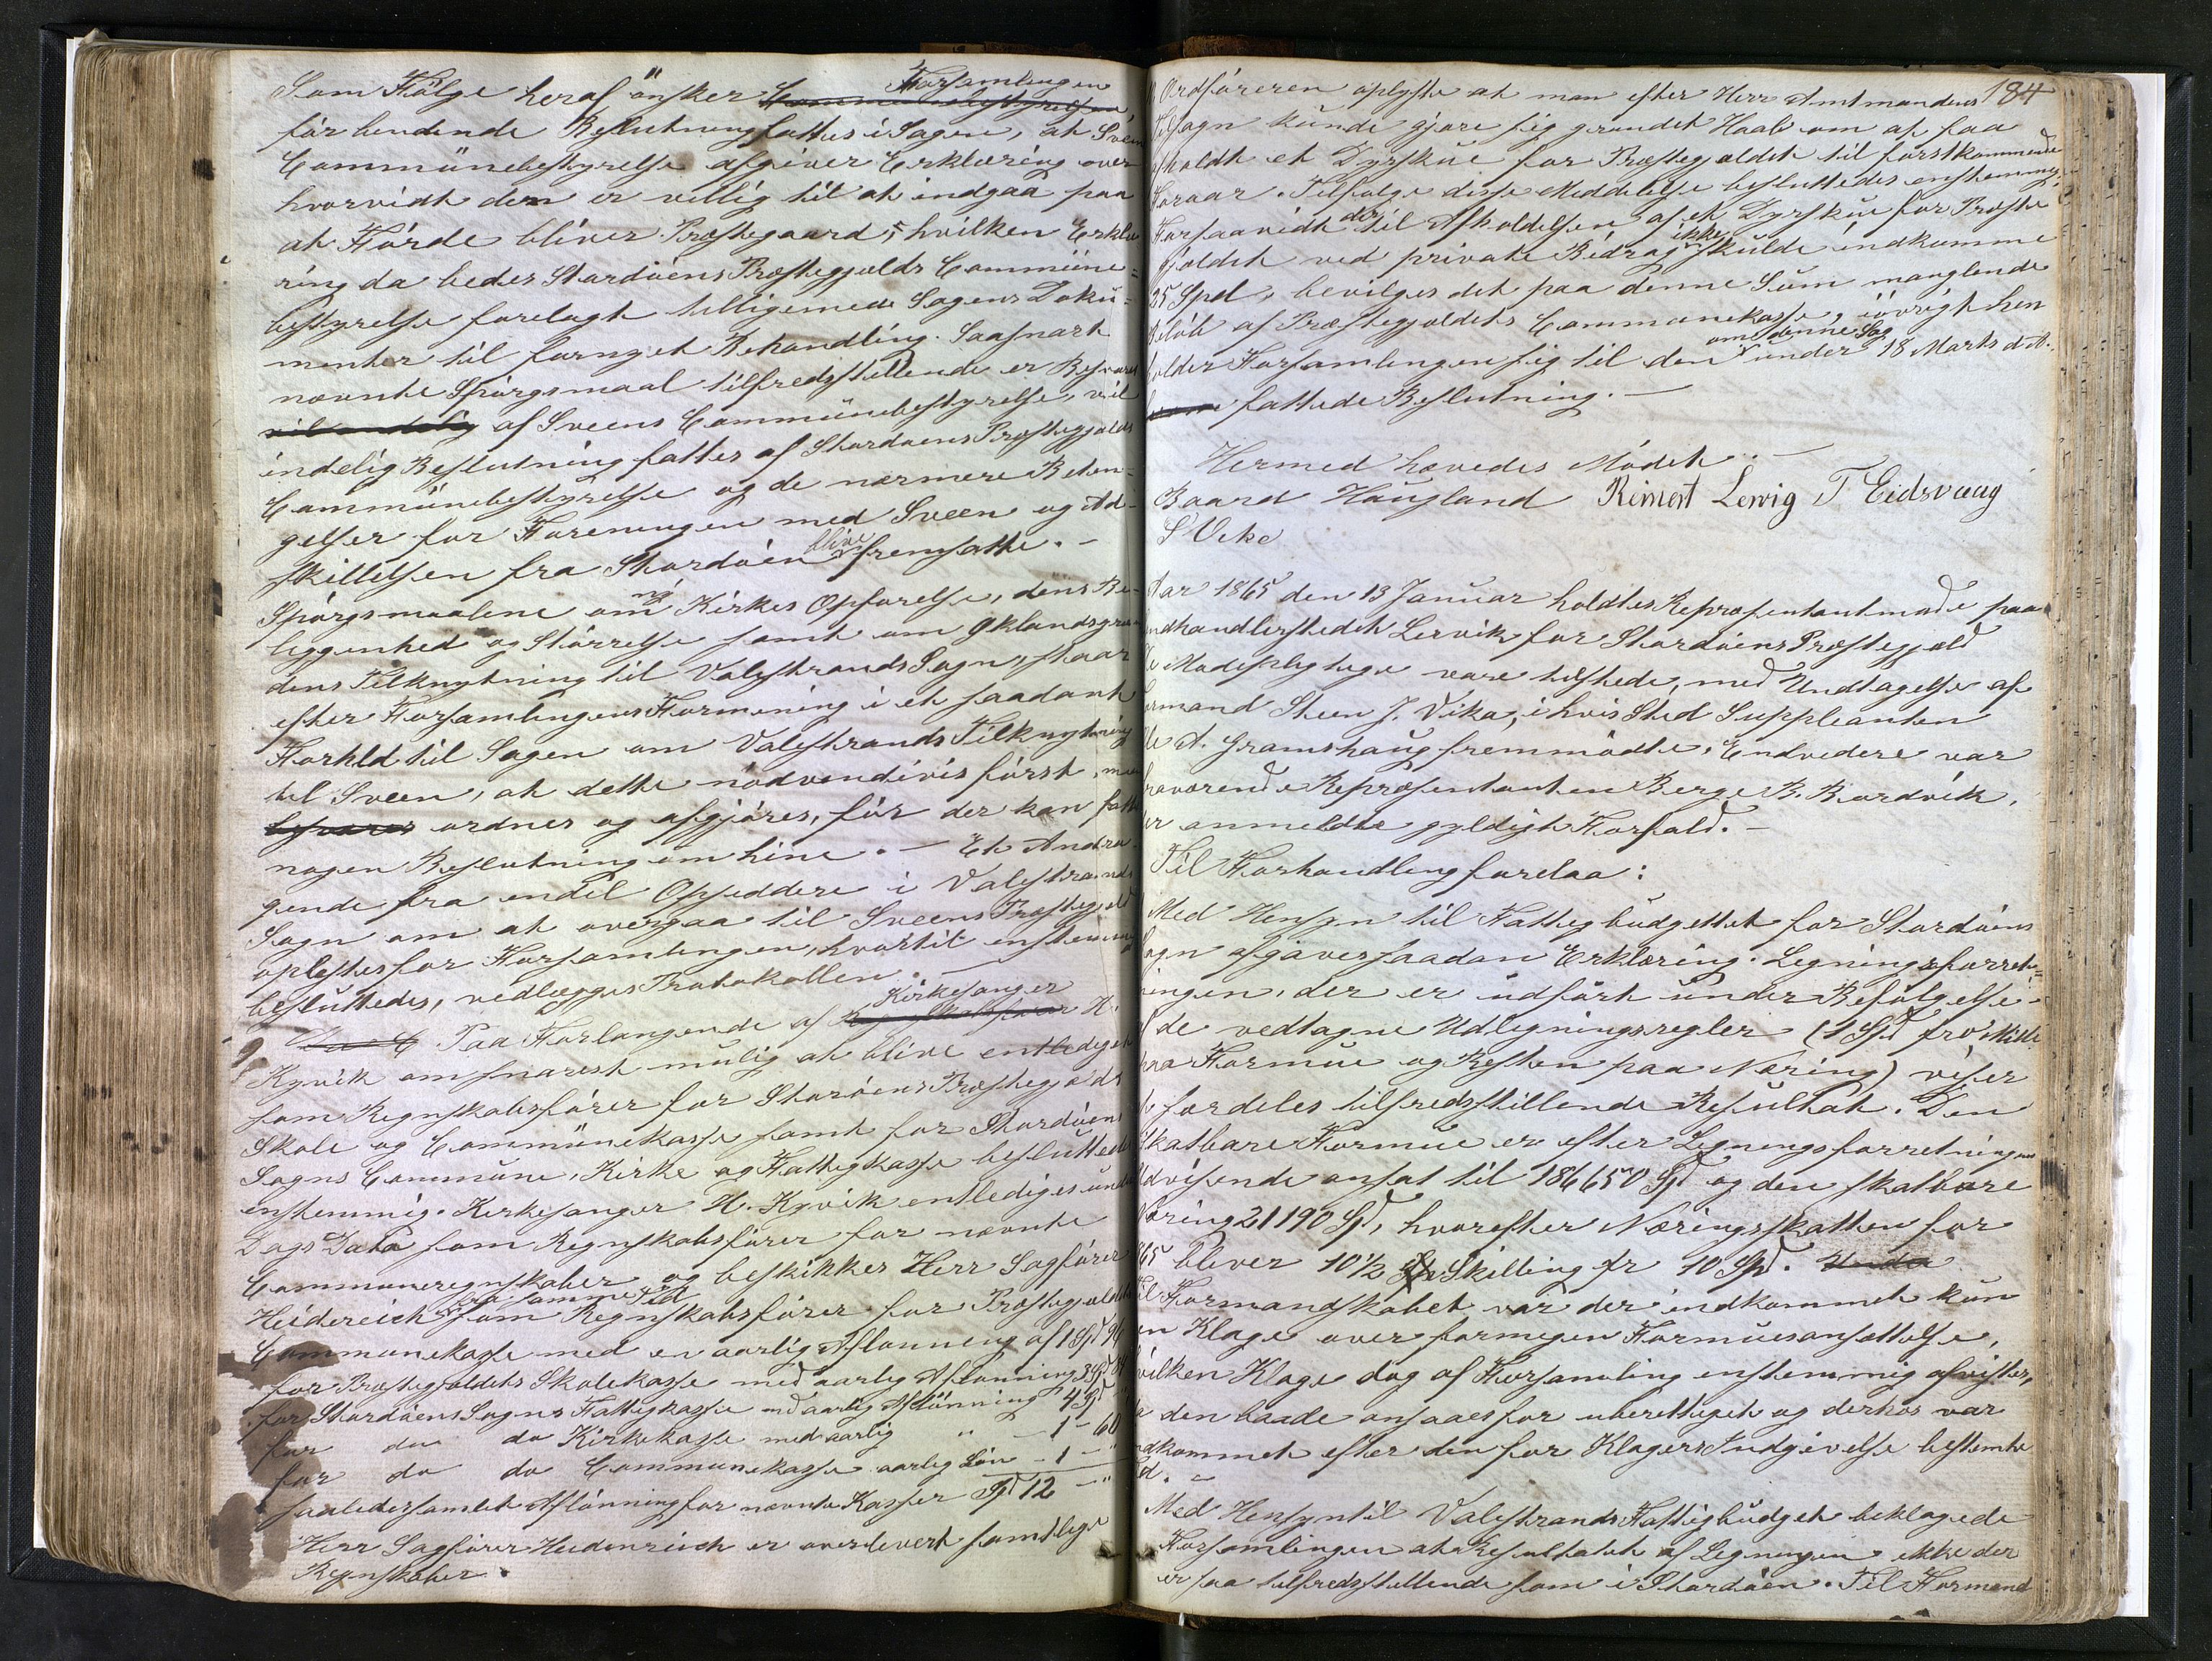 Som Følge heraf ønsker Forsamlingen
før bindende Beslutning fattes i Sagen, at Sveen
Communebestyrelse afgiver Erklæring over
hvorvidt den er villig til at indgaa paa
at Førde bliver Præstegaard, hvilken Erklæ
ring da bedes Stordøens Præstegjelds Commune=
bestyrelse forelagt tilligemed Sagens Doku=
menter til fornyet Behandling. Saasnart
nævnte Spørgsmaal tilfredsstillende er Besvaret
af Sveens Communebestyrelse, vil
endelig Beslutning fattes af Stordøens Præstegjelds
Communebestyrelse og de nærmere Betin=
gelser for Foreningen med Sveen og Ad=
skillelsen fra Stordøen blive fremsatte. –
Spørgsmaalene om ny Kirkes Opførelse, dens Be-
liggenhed og Størrelse samt om Øklandsgren
dens Tilknytning til Valestrands Sogn, staar
efter Forsamlingens Formening i et saadant
Forhld til Sagen om Valestrands Tilknytning
til Sveen, at dette nødvendivis først, maa
besvares ordnes og afgjøres, før der kan fatte
nogen Beslutning om hine. – Et Andra
gende fra endel Opsiddere i Valestrands
Sogn om at overgaa til Sveens Præstegjeld
oplæstes for Forsamlingen, hvortil enstemmig
besluttedes, vedlægges Protokollen. –
Paa Forlangende af Kirkesanger H.
Kyvik om snarest mulig at blive entlediget
som Regnskabsfører for Storøens Præstegjelds
Skole og Communekasse samt for Stordøens
Sogns Commune, Kirke og Fattigkasse besluttedes
enstemmig. Kirkesanger H. Kyvik entlediges under
Dags Dato som Regnskabsfører for nævnte
Communeregnskaber og beskikkes Herr Sagfører
Heidereich fra samme Tid som Regnskabsfører for Præstegjeldets
Communekasse med en aarlig Aflønning af 1 Spd 96
for Præstegjeldets Skolekasse med aarlig Aflønning 3 Spd 84
for Stordøens Sogns Fattigkasse md aarlig Aflønning 4 Spd "
for do do Kirkekasse med aarlig " – 1 – 60
for do do Communekasse aarlig Løn – 1 – "
saaledes samlet Aflønning for nævnte Kasser Spd 12 – "
Herr Sagfører Heidenreich er overlevert samtlige
Regnskaber.
184
Ordføreren oplyste at man efter Herr Amtmandens
Tilsagn kunde gjøre sig grundet Haab om at faa
afholdt et Dyrskue for Præstegjeldet til førstkommende
Foraar. Tilfølge disse Meddelelse besluttedes enstemmig:
Forsaavidt der til Afholdelsen af et Dyrskue for Præste
gjeldet ved private Bidrag ikke skulde indkomme
25 Spd, bevilges det paa denne Sum manglende
Beløb af Præstegjeldets Communekasse, iøvrigt hen
holder Forsamlingen sig til den om denne Sag under 18 Marts d. A.
fattede Beslutning. –
Hermed hævedes Mødet. –
Baard Haugland Rimert Lervig T Eidsvaag
S Vike
Aar 1865 den 13 Januar holdtes Repræsentantmøde paa
Landhandlerstedet Lervik for Stordøens Præstegjeld
De Mødepligtige vare tilstede, med Undtagelse af
Formand Steen J. Vika, i hvis Sted Suppleanten
Ole A. Gramshaug fremmødte. Endvidere var
fraværende Repræsentanten Berge B. Bordvik,
der anmeldte gyldigt Forfald. –
Til Forhandling forelaa:
Med Hensyn til Fattigbudgettet for Stordøens
Sogn afgaves saadan Erklæring. Legningsforret=
ningen, der er udført under Befølgelse
af de vedtagne Udlegningsregler (1 Spd pro Mille
paa Formue og Resten paa Næring) viser
et fordeles tilfredsstillende Resultat. Den
skatbare Formue er efter Legningsforretningen
udvisende ansat til 186650 Spd og den skatbare
Næring 21190 Spd, hvorefter Næringsskatten for
1865 bliver 10½ Skilling pr 10 Spd.
Til Formandskabet var der indkommet kun
en Klage over formegen Formuesansættelse,
hvilken Klage dog af Forsamling enstemmig afvistes,
da den baade ansaaes for uberettiget og derhos var
indkommet efter den for Klagers Indgivelse bestemte
Tid. –
Med Hensyn til Valestrands Fattigbudget beklagede
Forsamlingen at Resultatet af Legningen ikke der
er saa tilfredsstillende som i Stordøen. Til Formand